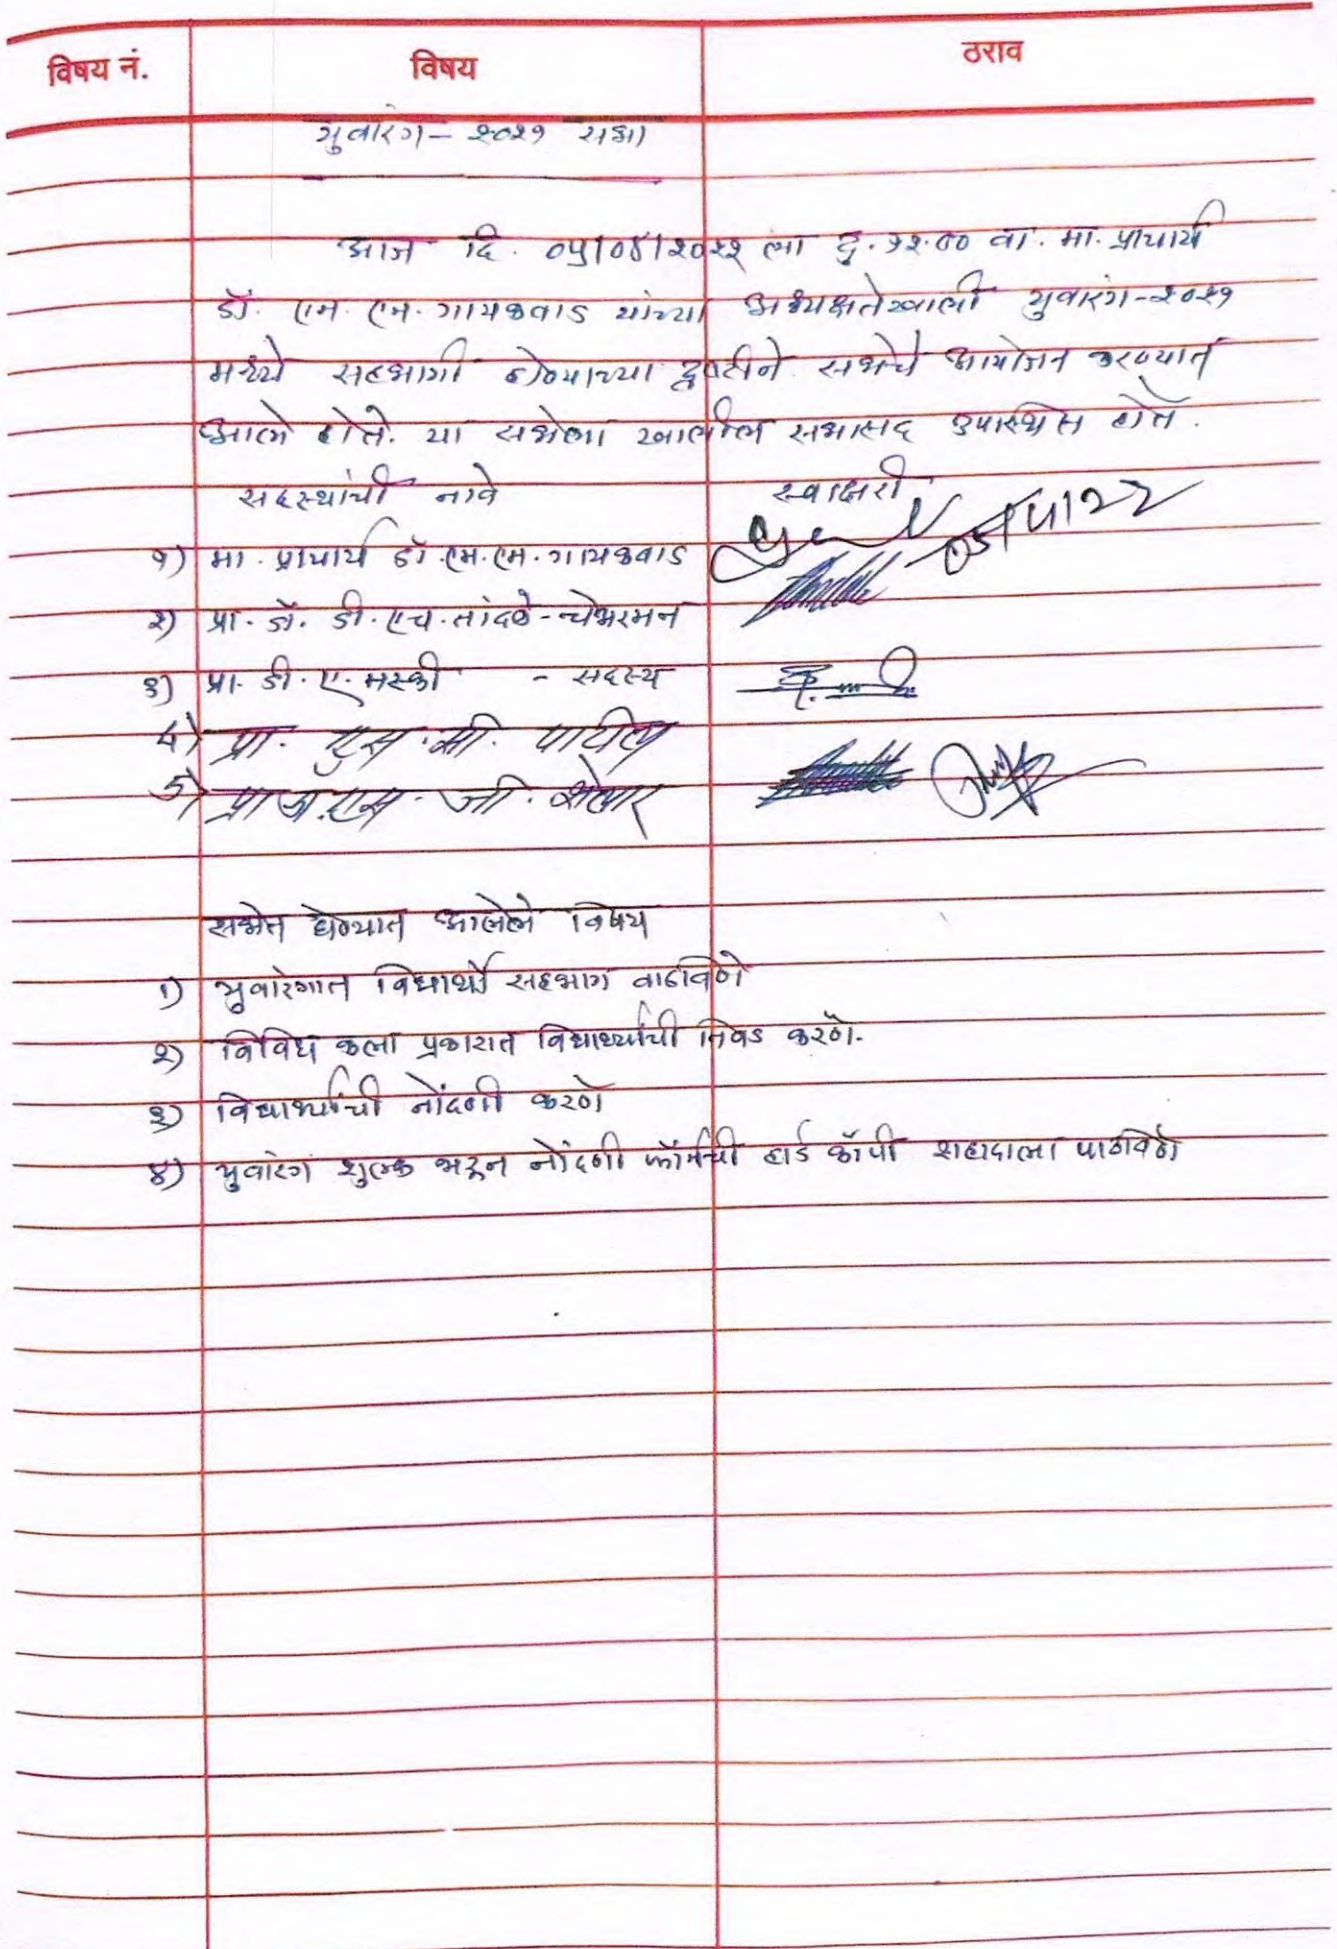 विषय नं. विषय ठराव
युवारंग - २०२१ सभा
आज दि. ०५/०४/२०२२ ला दु. १२.०० वा. मा. प्राचार्य
डॉ. एम. एम. गायकवाड यांच्या अध्यक्षतेखाली युवारंग-२०२१
मध्ये सहभागी होण्याच्या दृष्टीने सभेचे आयोजन करण्यात
आले होते. या सभेला खालील सभासद उपस्थित होते.
सदस्यांची नावे स्वाक्षरी
१) मा. प्राचार्य डॉ. एम. एम. गायकवाड
२) प्रा. डॉ. डी. एच. तांदळे - चेअरमन
३) प्रा. डी. ए. मस्की - सदस्य
४) प्रा. एस. सी. पाटील
५) प्रा. डॉ. एस. जी. शेलार
सभेत घेण्यात आलेले विषय
१) युवारंगात विद्यार्थी सहभाग वाढविणे
२) विविध कला प्रकारात विद्यार्थ्यांची निवड करणे.
३) विद्यार्थ्यांची नोंदणी करणे
४) युवारंग शुल्क भरून नोंदणी फॉर्मची हार्ड कॉपी शहादाला पाठविणे